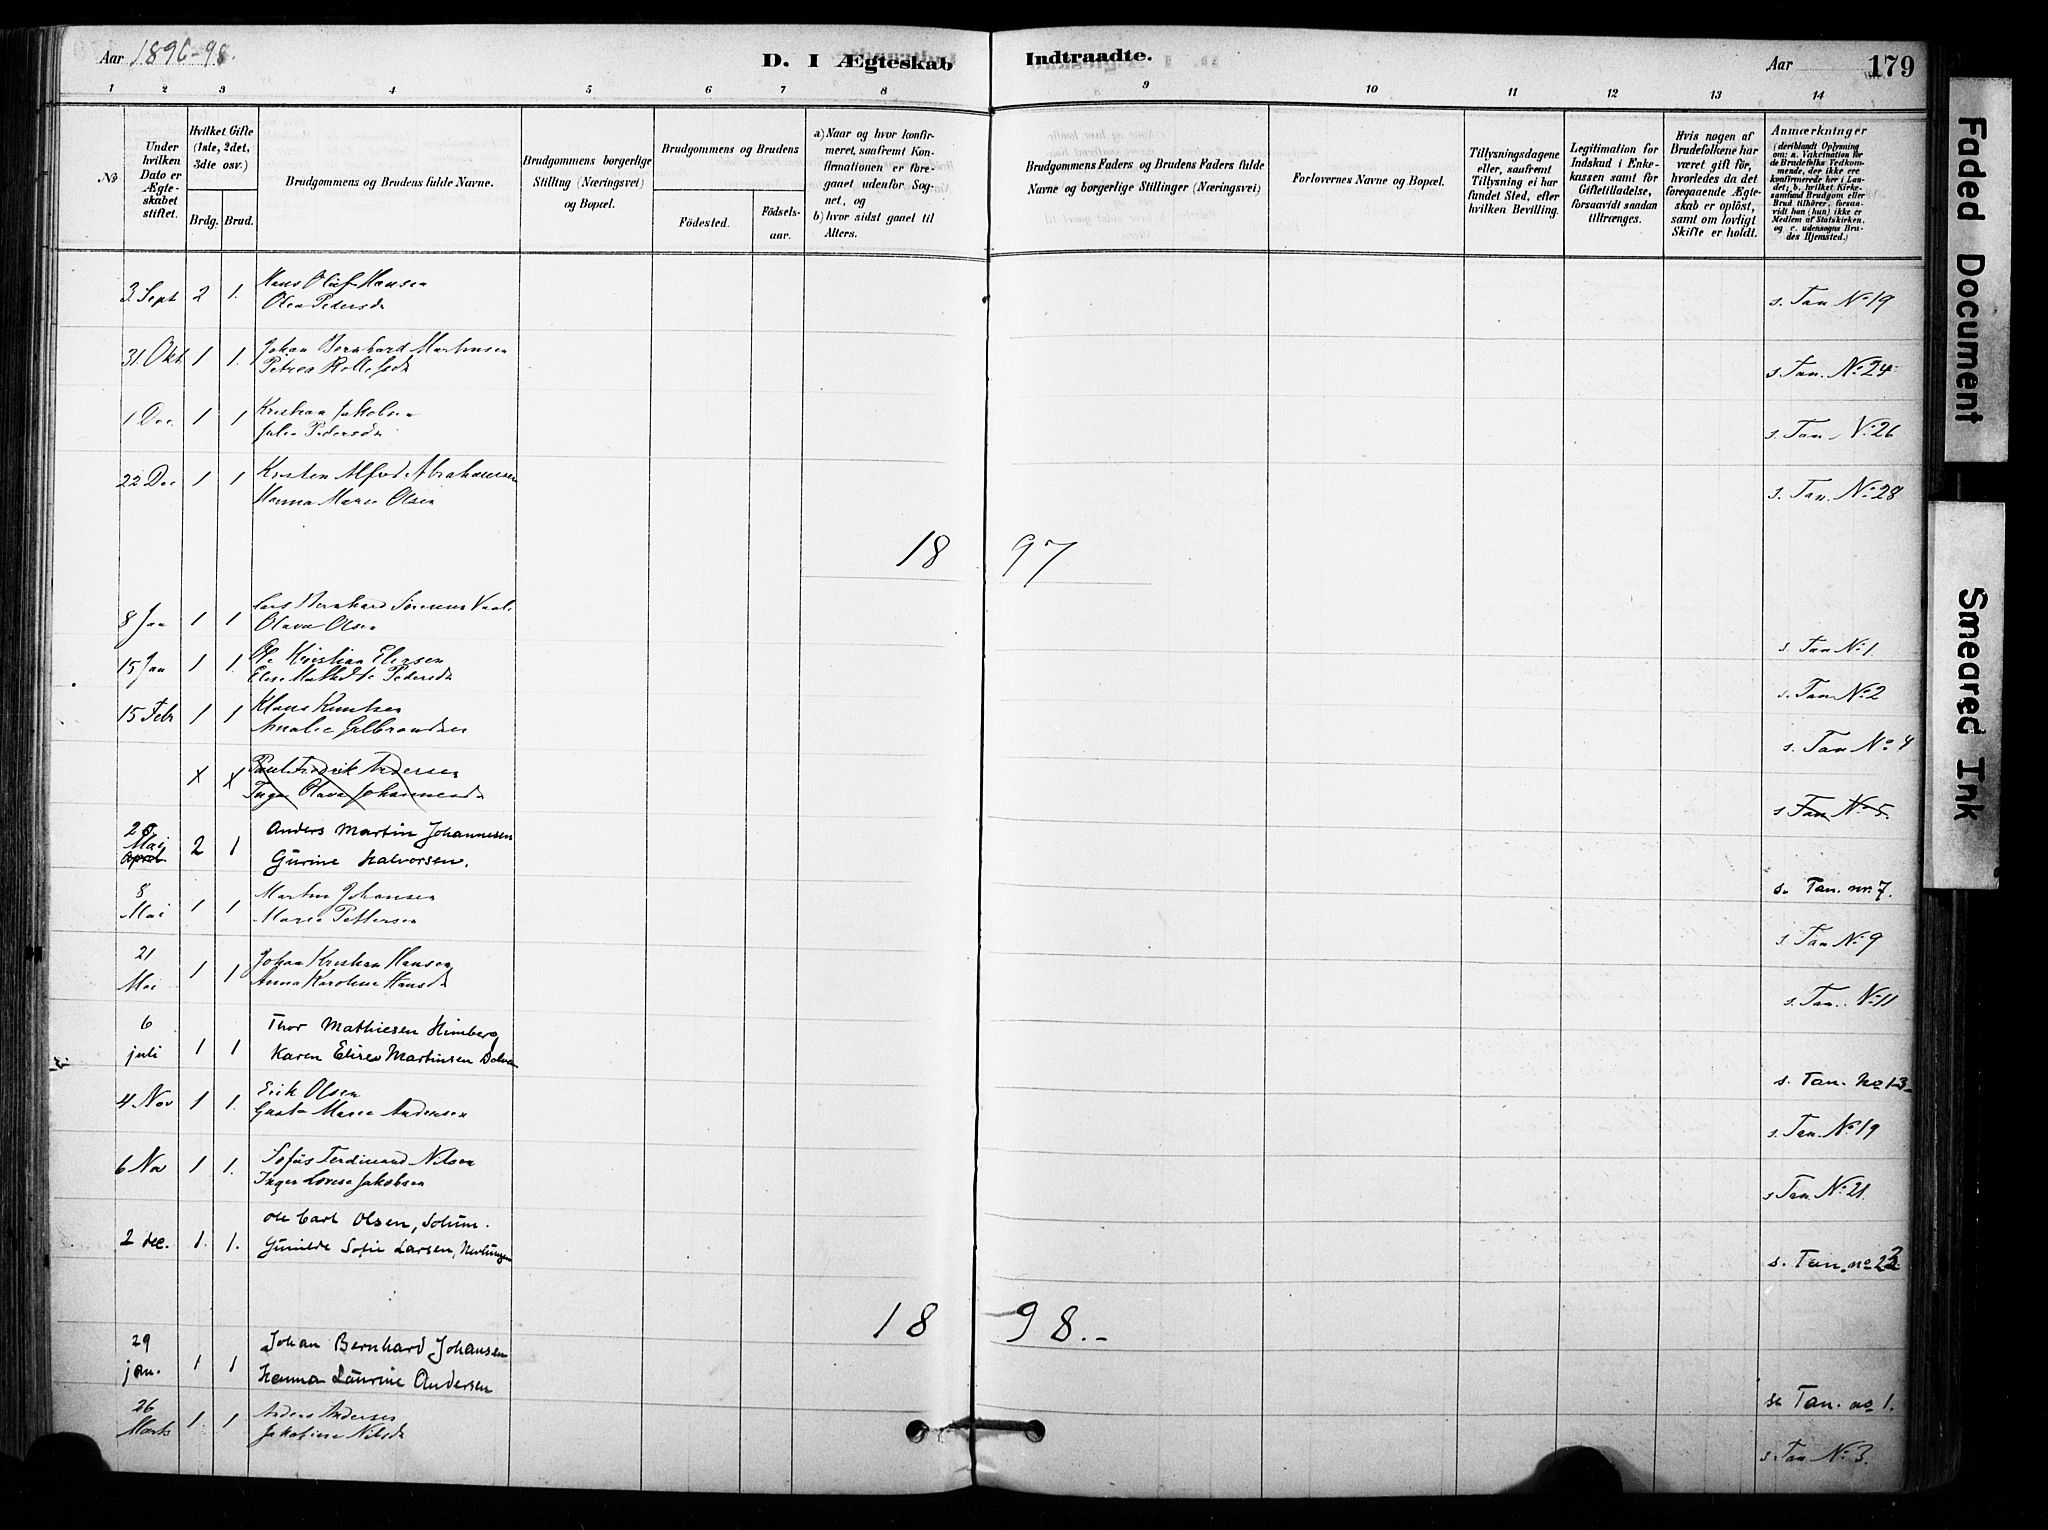 Aar 1896-98.
D. I Ægteskab
Indtraadte.
Aar
179
1 2 3 4 5 6 7 8 9 10 11 12 13 14
No
Under hvilken Dato er Ægteskabet stiftet.
Hvilket Gifte (1ste, 2det, 3die osv.)
Brdg. Brud.
Brudgommens og Brudens fulde Navne.
Brudgommens borgerlige Stilling (Næringsvei) og Bopæl.
Brudgommens og Brudens
Fødested.
Fødsels-aar.
a) Naar og hvor konfirmeret, saafremt Konfirmationen er foregaaet udenfor Sognet, og
b) hvor sidst gaaet til Alters.
Brudgommens Faders og Brudens Faders fulde Navne og borgerlige Stillinger (Næringsvei)
Forlovernes Navne og Bopæl.
Tillysningsdagene eller, saafremt Tillysning ei har fundet Sted, efter hvilken Bevilling.
Legitimation for Indskud i Enkekassen samt for Giftetilladelse, forsaavidt saadan tiltrænges.
Hvis nogen af Brudefolkene har været gift før, hvorledes da det foregaaende Ægteskab er opløst, samt om lovligt Skifte er holdt.
Anmærkninger (deriblandt Oplysning om: a. Vakcination for de Brudefolks Vedkommende, der ikke ere konfirmerede her i Landet; b. hvilket Kirkesamfund Brudgom eller Brud tilhører, forsaavidt han (hun) ikke er Medlem af Statskirken, og c. udensogns Brudes Hjemsted.)
3 Sept 2 1. Hans Oluf Hansen
Olea Pedersdr
s. Tan No 19
31 Okt 1 1. Johan Bernhard Martinsen
Petrea Rollefsdr
s. Tan. No 24
1 Dec 1 1 Kristian Jakobsen
Julie Pedersdr
s. Tan No 26
22 Dec 1 1 Kristen Alfred Abrahamsen
Hanna Marie Olsen
s. Tan. No 28
18 97
8 Jan 1 1 Lars Bernhard Sørensen
Olava Olsen
s. Tan No 1.
15 Jan 1 1. Ole Kristian Eliesen
Elise Mathilde Pedersdr
s. Tan No 2
15 Febr 1 1 Klaus Knutsen
Amalie Gulbrandsen
s. Tan No 4
x x Paul Fredrik Andersen
Inga Olava Johannesdr
s Tan No 5.
28 Mai April 2 1 Anders Martin Johannesen
Gurine Halvorsen.
s. Tan. nr. 7.
8 Mai 1 1 Martin Johansen
Marie Pettersen
s Tan No 9
21 Mai 1 1 Johan Kristian Hansen
Anna Karoline Hansdr
s. Tan. No 11
6 juli 1 1 Thor Mathiesen Himberg
Karen Elise Martinsen
s. Tan. no 13
4 Nov 1 1. Erik Olsen
Gusta Marie Andersen
s. Tan. No 19
6 Nov 1 1. Sofus Ferdinand Nilsen
Inger Lovise Jakobsen
s Tan. No 21.
2 dec. 1. 1. Ole Carl Olsen, Solum.
Gunilde Sofie Larsen, Nevlungen
s. Tan. no 22
18 98.-
29 jan. 1 1 Johan Bernhard Johansen
Hanna Laurine Andersen
se Tan. no 1.
26 Marts 1. 1. Anders Andersen
Jakobine Nilsdr
s. Tan No 3.
Faded Document
Smeared Ink